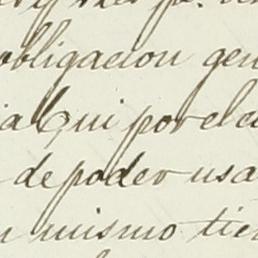 obligacion gen
Qui por el c
de poder usa
mismo tien